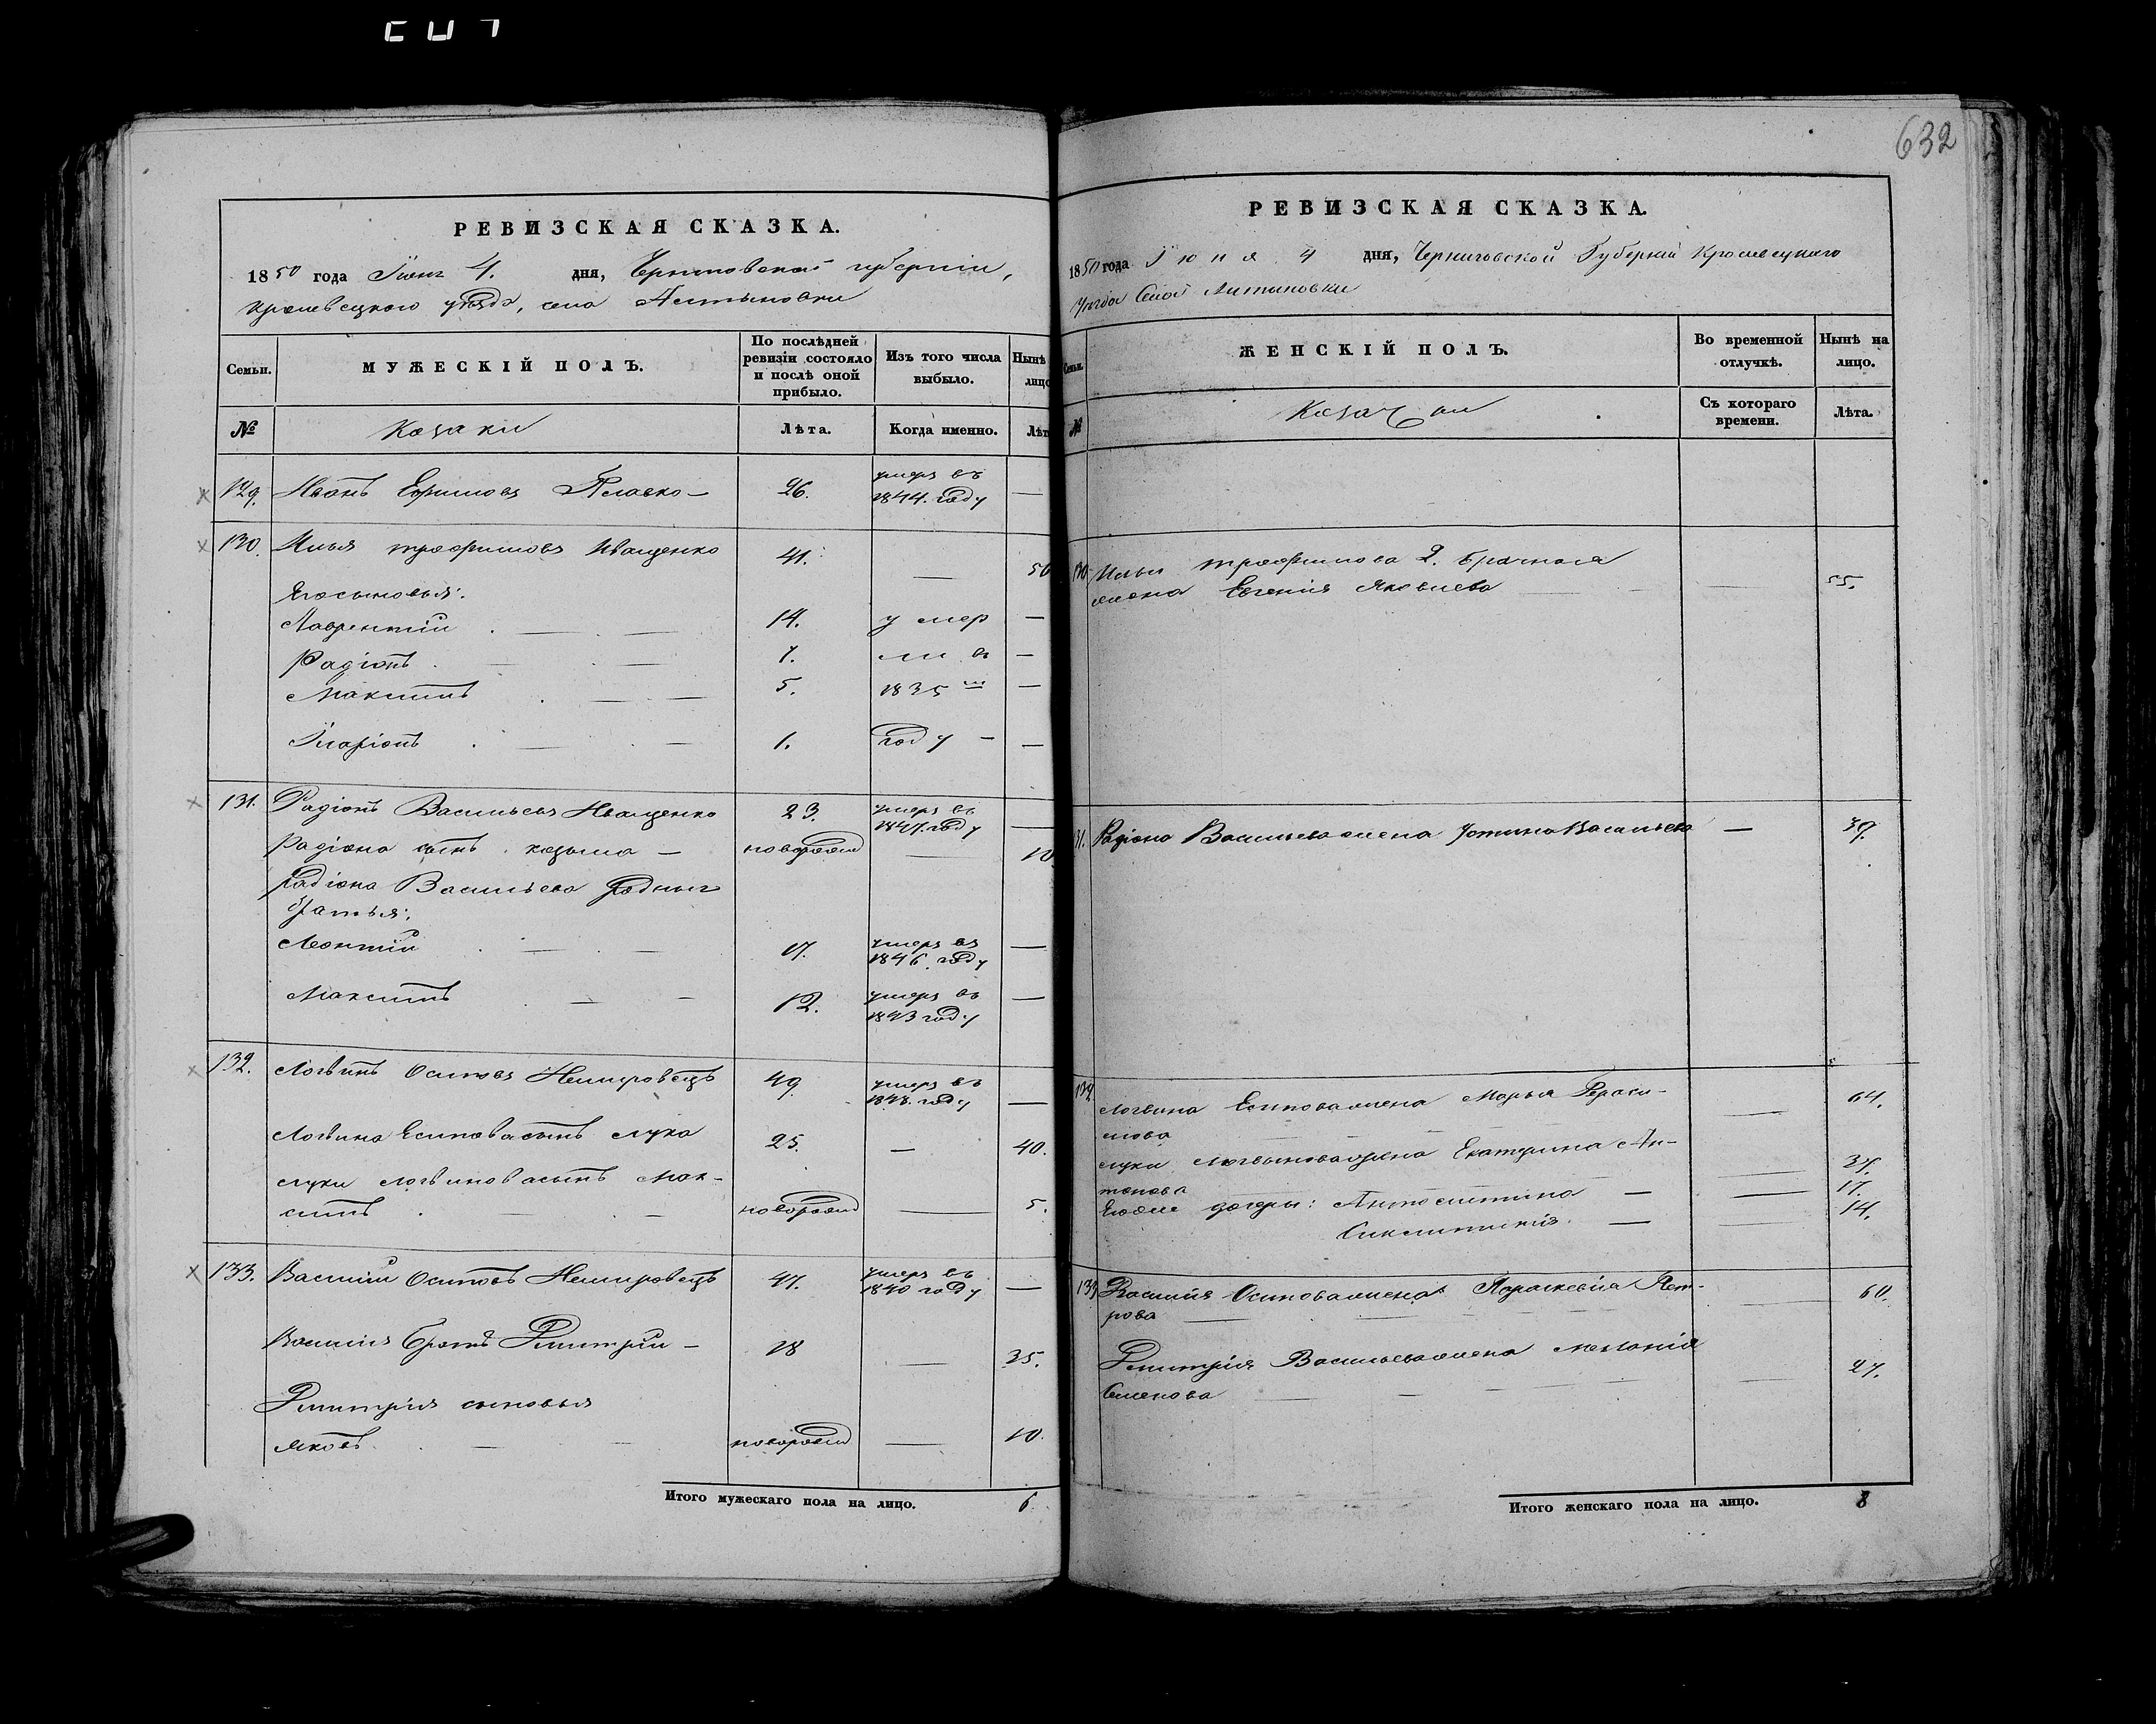 632
РЕВИЗСКАЯ СКАЗКА.
1850 года Іюня 4. дня, Черниговской губерніи,
Кролевецкаго уѣзда, села
МУЖЕСКІЙ ПОЛЪ.
Семьи.
По послѣдней ревизіи состояло и послѣ оной прибыло.
Изъ того числа выбыло.
Нынѣ лицо
№ Козаки Лѣта. Когда именно. Лѣт
129. Иванъ Ефимовъ 26. умеръ въ 1844. году —
130. Илья Трофимовъ Иващенко 41. — 56
Его сыновья:
Лаврентій 14. умер —
Радіонъ 7. ли въ —
Максимъ 5. 1835 м —
Іларіонъ 1. году —
131. Радіонъ Васильевъ Иващенко 23. умеръ въ 1847. году —
Радіона сынъ козьма — новорожд — 10
Радіона Васильева родные
братья:
Леонтій 17. умеръ въ 1846. году —
Максимъ 12. умеръ въ 1843 году —
132. Логвинъ Осиповъ Немировецъ 49. умеръ въ 1848. году —
Логвина Есипова сынъ Лука 25. — 40.
Луки Логвинова сынъ Мак-
симъ новорожд — 5.
133. Василій Осиповъ Немировецъ 47. умеръ въ 1840 году —
Василія братъ Дмитрій — 18 — 35.
Дмитрія сыновья
Яковъ новорожд — 10.
Итого мужескаго пола на лицо. 6
РЕВИЗСКАЯ СКАЗКА.
1850 года Іюня 4 дня, Черниговской Губерніи Кролевецкаго
Уѣзда Села
Семьи.
ЖЕНСКІЙ ПОЛЪ.
Во временной отлучкѣ.
Нынѣ на лицо.
№ Козачки Съ котораго времени. Лѣта.
130 Ильи Трофимова 2. брачная
жена Евгенія Яковлева — 55.
131. Радіона Васильева жена Устина Васильева — 39.
132 Логвина Есипова жена Марья Гераси-
мова — 64.
Луки Логвинова жена Екатерина Ан-
тонова — 37.
Его же дочери: — 17.
— 14.
133 Василія Осипова жена Параскевія Пет-
рова — 60.
Дмитрія Васильева жена Меланія
Семенова — 27.
Итого женскаго пола на лицо. 8